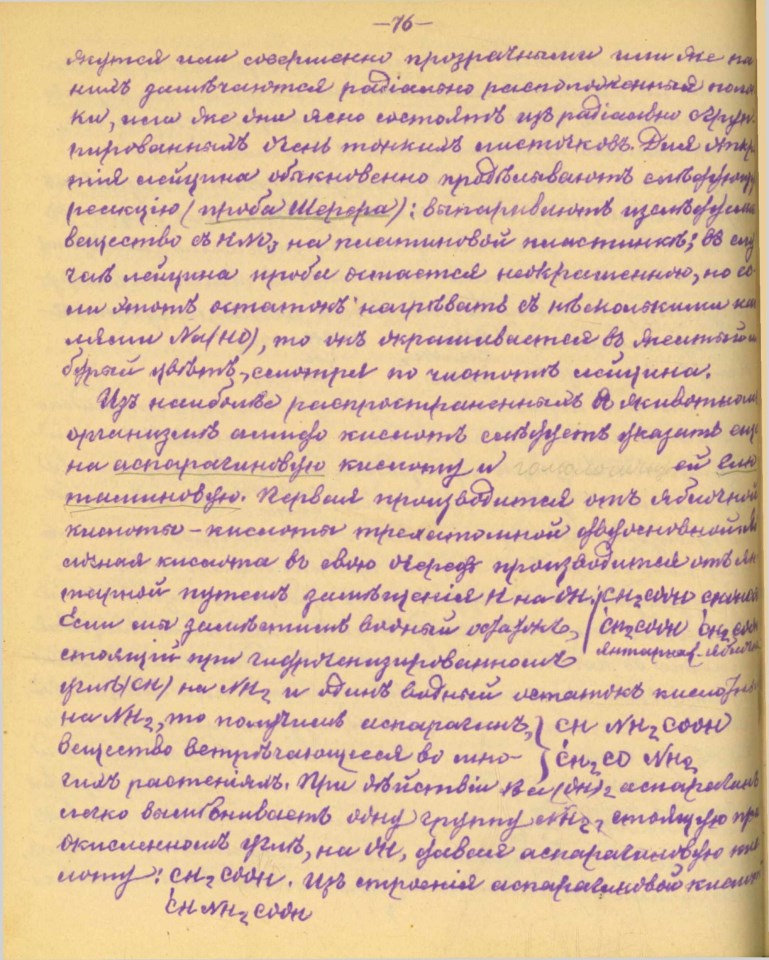 —76—
жутся или совершенно прозрачными или же на
нихъ замѣчаются радіально расположенныя поло
ки, или же они ясно состоятъ изъ радіально сгруп
пированныхъ очень тонкихъ листочковъ. Для откр
тія лейцина обыкновенно продѣлываютъ слѣдующу
реакцію (проба Шерера): выпариваютъ изслѣдуемо
вещество съ HNO3 на платиновой пластинкѣ; въ слу
чаѣ лейцина проба остается неокрашенною, но ес-
ли этотъ остатокъ нагрѣвать съ нѣсколькими ка
лями Na(HO), то онъ окрашивается въ желтый и
бурый цвѣтъ, смотря по чистотѣ лейцина.
Изъ наиболѣе распространенныхъ въ животномъ
организмѣ амидо кислотъ слѣдуетъ указать еще
на аспарагиновую кислоту и гомологичн ей глю
таминовую. Первая производится отъ яблочной
кислоты – кислоты трехатомной двухосновной. Яб
лочная кислота въ свою очередь производится отъ ян
тарной путемъ замѣщенія H на OH. CH2COOH CHOHCOOH
Если мы замѣстимъ водный остатокъ, CH2COOH CH2COOH
стоящій при гидрогенизированномъ Янтарная Яблочн
углѣ (CH) на NH2 и одинъ водный остатокъ кислотн
на NH2, то получимъ аспарагинъ, CH NH2COOH
вещество встрѣчающееся во мно- CH2CO NH2
гихъ растеніяхъ. При дѣйствіи Ba(OH)2 аспарагинъ
легко вымѣниваетъ одну группу NH2, стоящую при
окисленномъ углѣ, на OH, давая аспарагиновую кис
лоту: CH2COOH. Изъ строенія аспарагиновой кислоты
CHNH2COOH